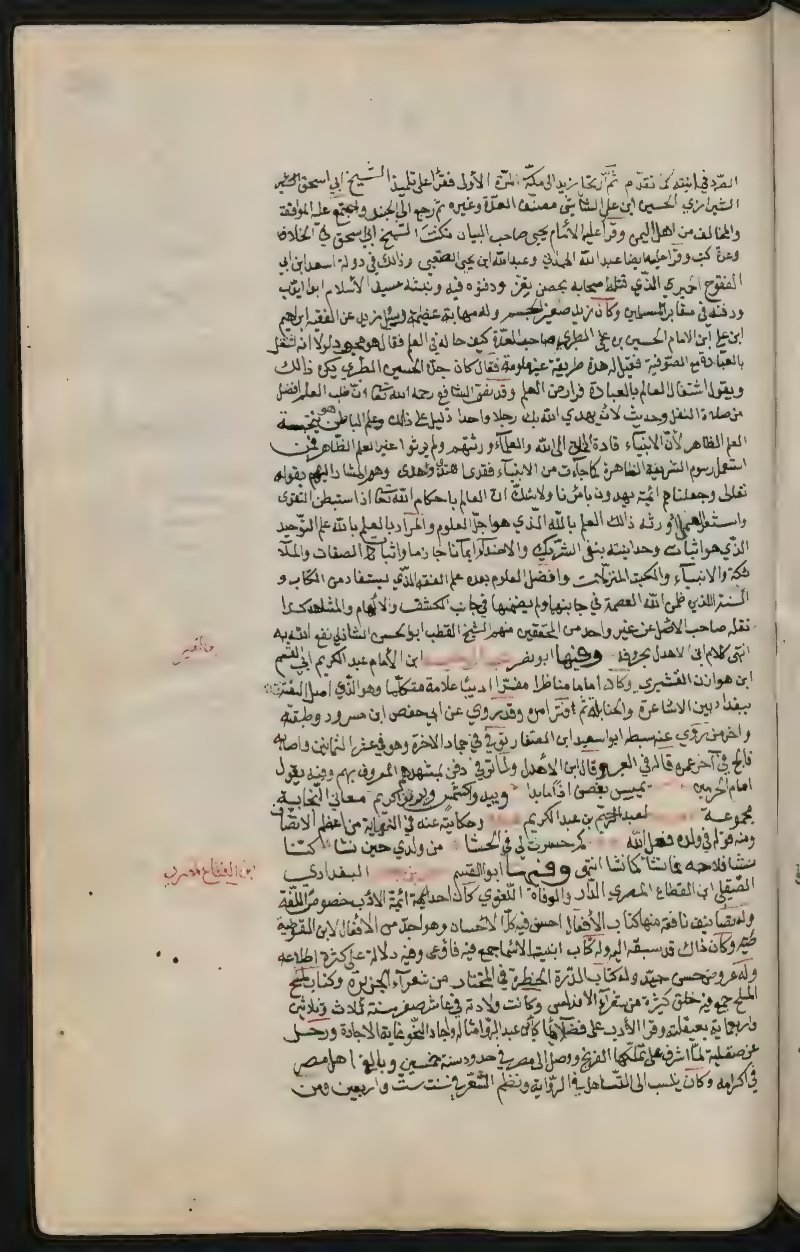 كما تقدم ثم ارتحل زيد الى مكة المرة الأولى فقرأ على تلميذ الشيخ ابي اسحق
الشيرازي الحسين ابن علي الشاشي مصنف العدة وغيره ثم رجع الى الجند واجتمع عليه الموافق
والمخالف من اهل اليمن وقرأ عليه الأمام يحيى صاحب البيان نكت الشيخ ابي اسحق في الخلاف
وعدة كتب وقرأ عليه ايضا عبد الله الهمداني وعبد الله ابن يحيى الصعبي وذلك في دولة اسعد ابن ابي
الفتوح الحميري الذي قتله اصحابه بحصن تعز ودفنوه فيه ونبشه سيف الأسلام ابو ايوب
ودفنه في مقابر المسلمين وكان زيد صغير الجسم وله مهابة عظيمة وسئل زيد عن الفقيه ابراهيم
ابن علي ابن الامام الحسين بن علي الطبري صاحب العدة كيف حاله في العلم فقال هو مجود لولا انه اشتغل
بالعبادة مع الصوفية فقيل له هذه طريقة غير ملومة فقال كان جده الحسين الطبري يكره ذالك
ويقول اشتغال العالم بالعبادة فرار من العلم وقد نص الشافعي رحمه الله تعالى ان طلب العلم افضل
من صلاة النفل وحديث لأن يهدي الله بك رجلا واحدا دليل على ذالك وعلم الباطن هو نتيجة
العلم الظاهر لأن الانبياء قادة الخلق الى الله والعلماء ورثتهم ولم يرثوا غير العلم الظاهر فمن
استعمل رسوم الشريعة الظاهرة كما جاءت من الانبياء فقد اهتدى وهدى وهو المشار اليهم بقوله
تعالى وجعلناهم ائمة يهدون بامرنا ولا شك ان العالم باحكام الله تعالى اذا استبطن التقوى
واستشعر العمل أورثه ذالك العلم بالله الذي هو اجل العلوم والمراد بالعلم بالله علم التوحيد
الذي هو اثبات وحدانيته بنفي الشريك والاضداد ايمانا جازما واثبات الصفات والملا
ئكة والانبياء والكتب المنزلات وافضل العلوم بعده علم الفقه الذي يستفاد من الكتاب و
السنة اللذي ضمن الله العصمة في جانبهما ولم يضمنها في جانب الكشف والالهام والمشاهد كذا
نقله صاحب الاصل عن غير واحد من المحققين منهم الشيخ القطب ابو الحسن الشاذلي نفع الله به
انتهى كلام ابن الاهدل بحروفه وفيها ابو نصر عبد الرحيم ابن الأمام عبد الكريم ابي القسم
ابن هوازن القشيري وكان اماما مناظرا مفسرا اديبا علامة متكلما وهو الذي اصل الفتنة
ببغداد بين الاشاعرة والحنابلة ثم فتر امره وقد روى عن ابي حفص ابن مسرور وطبقته
واخر من روى عنه سبطه ابو سعيد ابن الصفار توفي في جماد الاخرة وهو في عشر الثمانين واصابه
فالج في آخر عمره قاله في العبر وقال ابن الأهدل ولما توفي دفن بمشهدهم المعروف بهم وفيه يقول
امام الحرمين يميس بغصن اذا ما بدا ويبدو كشمس ويرنو كريم معاني النجابة
مجموعة لعبد الرحيم بن عبد الكريم وحكايته عنه في النهاية من اعظم الانصاف
ومنه قوله في ولده فضل الله كم حسرت لي في الحشا من ولدي حين نشا كنا
نشا فلاحه فما نشا كما نشا انتهى وفيها ابو القسم البغدادي
الصقلي ابن القطاع المصري الدار والوفاة اللغوي كان احد ايمة ائمة الأدب خصوصا اللغة
وله تصانيف نافعة منها كتاب الأفعال احسن فيه كل الاحسان وهو اجل من الأفعال لابن القوطية
وكان ذاك قد سبقه اليه وله كتاب ابنية الاسما جمع فيه فأوعى وفيه دلالة على كثرة اطلاعه
وله عروض حسن جيد وله كتاب الدرة الخطيرة في المختار من شعرآء الجزيرة وكتاب لمح
الملح جمع فيه خلق كثيرة من شعرآء الاندلس وكانت ولادته في عاشر صفر سنة ثلاث وثلاثين
واربعماية بصقلية وقرأ الأدب على فضلائها كابن عبد البر وامثاله واجاد النحو غاية الاجادة ورحل
عن صقلية لما اشرف على تملكها الفرنج ووصل الى مصر في حدود سنة خمسين وبالغ اهل مصر
في اكرامه وكان ينسب الى التساهل في الرواية ونظم الشعر في سنة ست واربعين ومن
ابن القطاع المصري